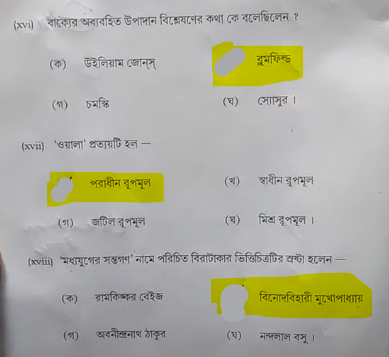 (xvi) বাক্যের অব্যবহিত উপাদান বিশ্লেষণের কথা কে বলেছিলেন ?
(ক) উইলিয়াম জোন্স্ ব্লুমফিল্ড
(গ) চমস্কি (ঘ) স্যোসুর ।
(xvii) 'ওয়ালা' প্রত্যয়টি হল —
পরাধীন রূপমূল (খ) স্বাধীন রূপমূল
(গ) জটিল রূপমূল (ঘ) মিশ্র রূপমূল ।
(xviii) 'মধ্যযুগের সন্তগণ' নামে পরিচিত বিরাটাকার ভিত্তিচিত্রটির স্রষ্টা হলেন —
(ক) রামকিঙ্কর বেইজ বিনোদবিহারী মুখোপাধ্যায়
(গ) অবনীন্দ্রনাথ ঠাকুর (ঘ) নন্দলাল বসু ।